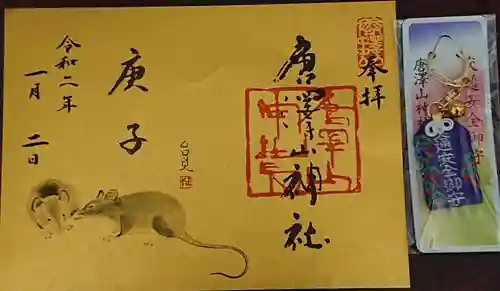 奉拝
唐澤山神社
庚子
令和二年
一月二日
交通安全御守
唐澤山神社
交通安全御守